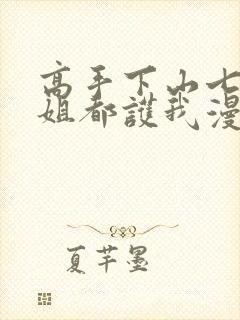 高手下山七
姐都護我漫
夏芊墨